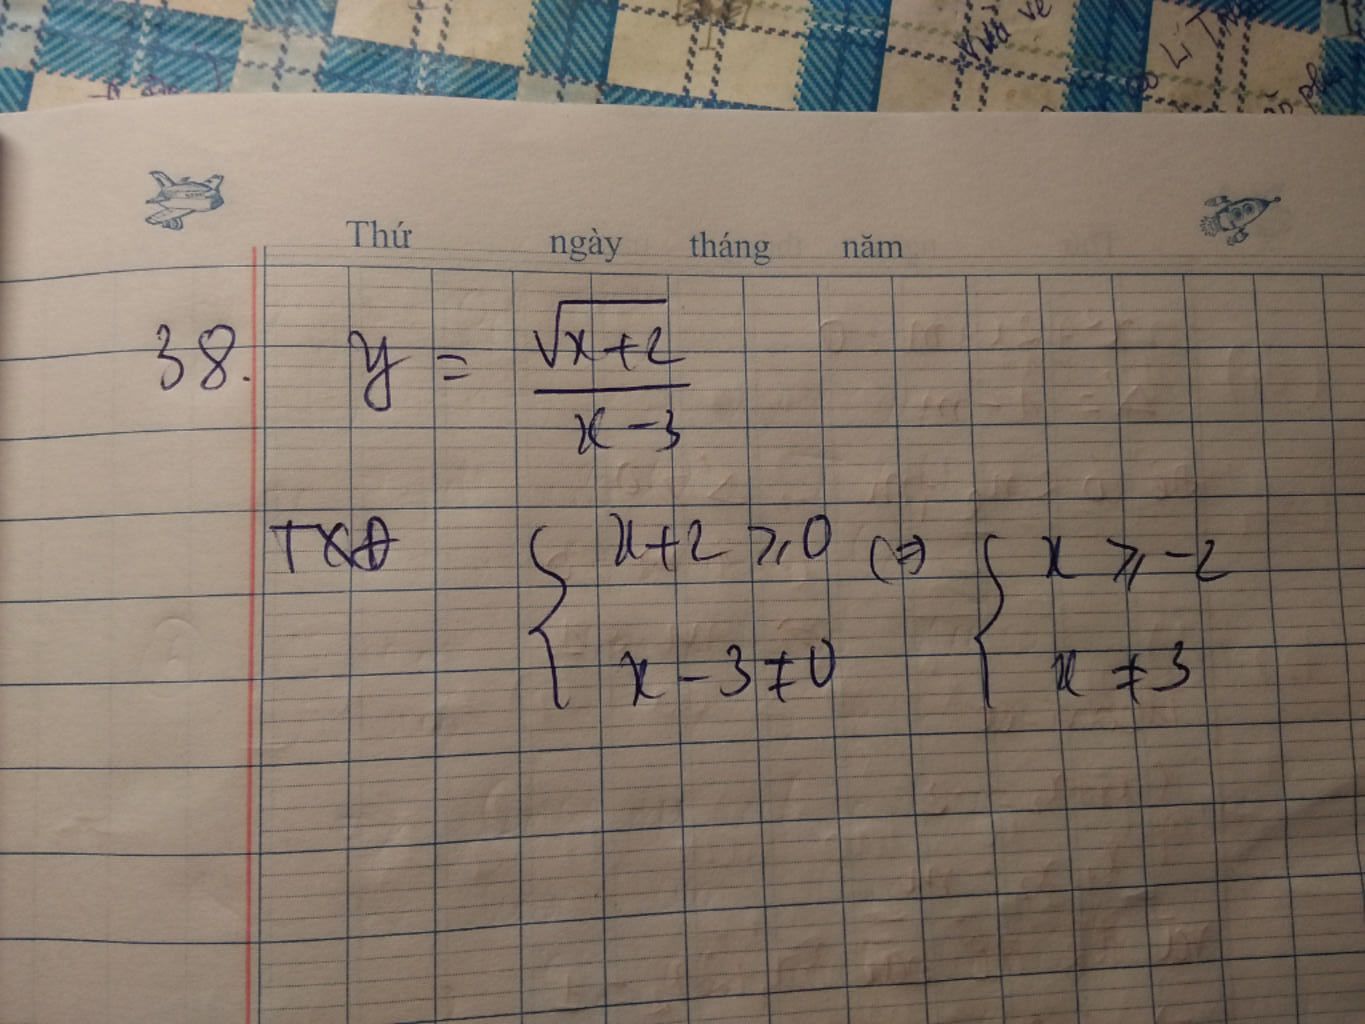 Thứ ngày tháng năm
38. y = √x+2 / x-3
TXĐ { x+2 ⩾ 0 (=) { x ⩾ -2
x - 3 ≠ 0 x ≠ 3